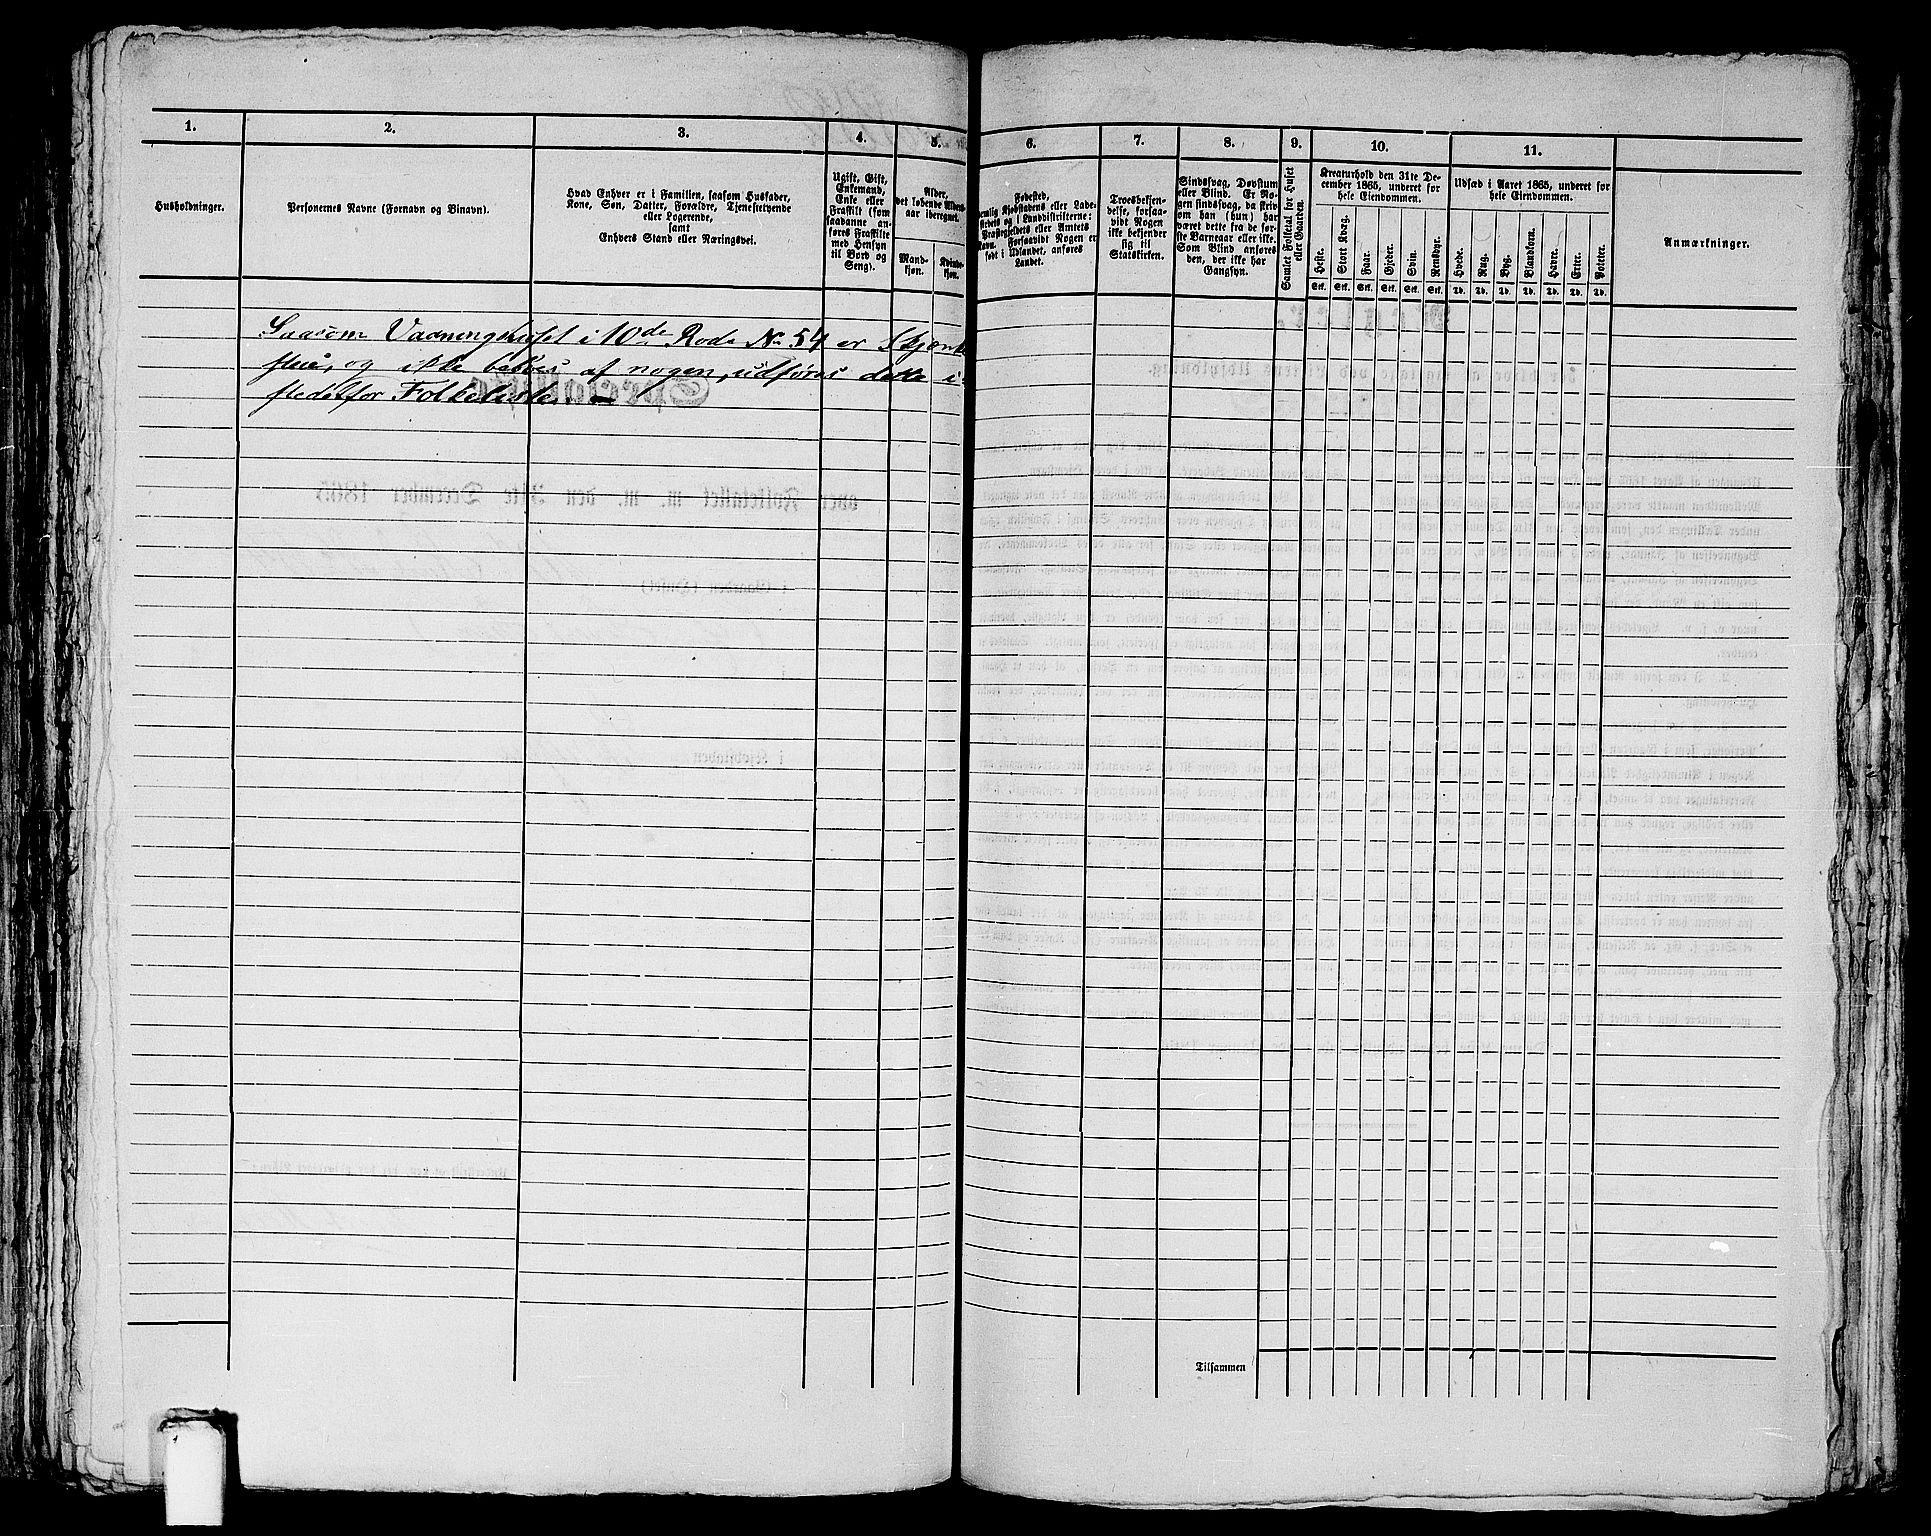 1.
2.
3.
4.
5.
6.
7.
8.
9.
10.
11.
Husholdninger.
Personernes Navne (Fornavn og Binavn).
Hvad Enhver er i Familien, saasom Husfader,
Kone, Søn, Datter, Forældre, Tjenestetyende
eller Logerende,
samt
Enhvers Stand eller Næringsvei.
Ugift, Gift,
Enkemand,
Enke eller
Fraskilt (som
saadanne an-
føres Fraskilte
med Hensyn
til Bord og
Seng).
Alder,
det løbende Alders-
aar iberegnet.
Mand-
kjøn.
Kvinde-
kjøn.
Fødested,
Kjøbstadens eller Lade-
i Landdistrikterne:
eller Amtets
Navn. Forsaavidt Nogen er
født i Udlandet, anføres
Landet.
Troesbekjen-
delse, forsaa-
vidt Nogen
ikke bekjender
sig til
Statskirken.
Sindssvag, Døvstum
eller Blind. Er No-
gen sindssvag, da skriv
om han (hun) har
været dette fra de før-
ste Barneaar eller ikke.
Som Blind anføres
den, der ikke har
Gangsyn.
Samlet Folketal for Huset
eller Gaarden.
Kreaturhold den 31te De-
cember 1865, underet for
hele Eiendommen.
Heste.
Stort Kvæg.
Faar.
Gjeder.
Svin.
Rensdyr.
Stk. Stk. Stk. Stk. Stk. Stk.
Udsæd i Aaret 1865, underet for
hele Eiendommen.
Hvede.
Rug.
Byg.
Blandkorn.
Havre.
Erter.
Poteter.
Td. Td. Td. Td. Td. Td. Td.
Anmærkninger.
Saasom Vaaningshuset i 10de Rode No 54 er Skjænk
stue, og ikke beboes af nogen, udføres dette i-
stedetfor Folkeliste. —
Tilsammen